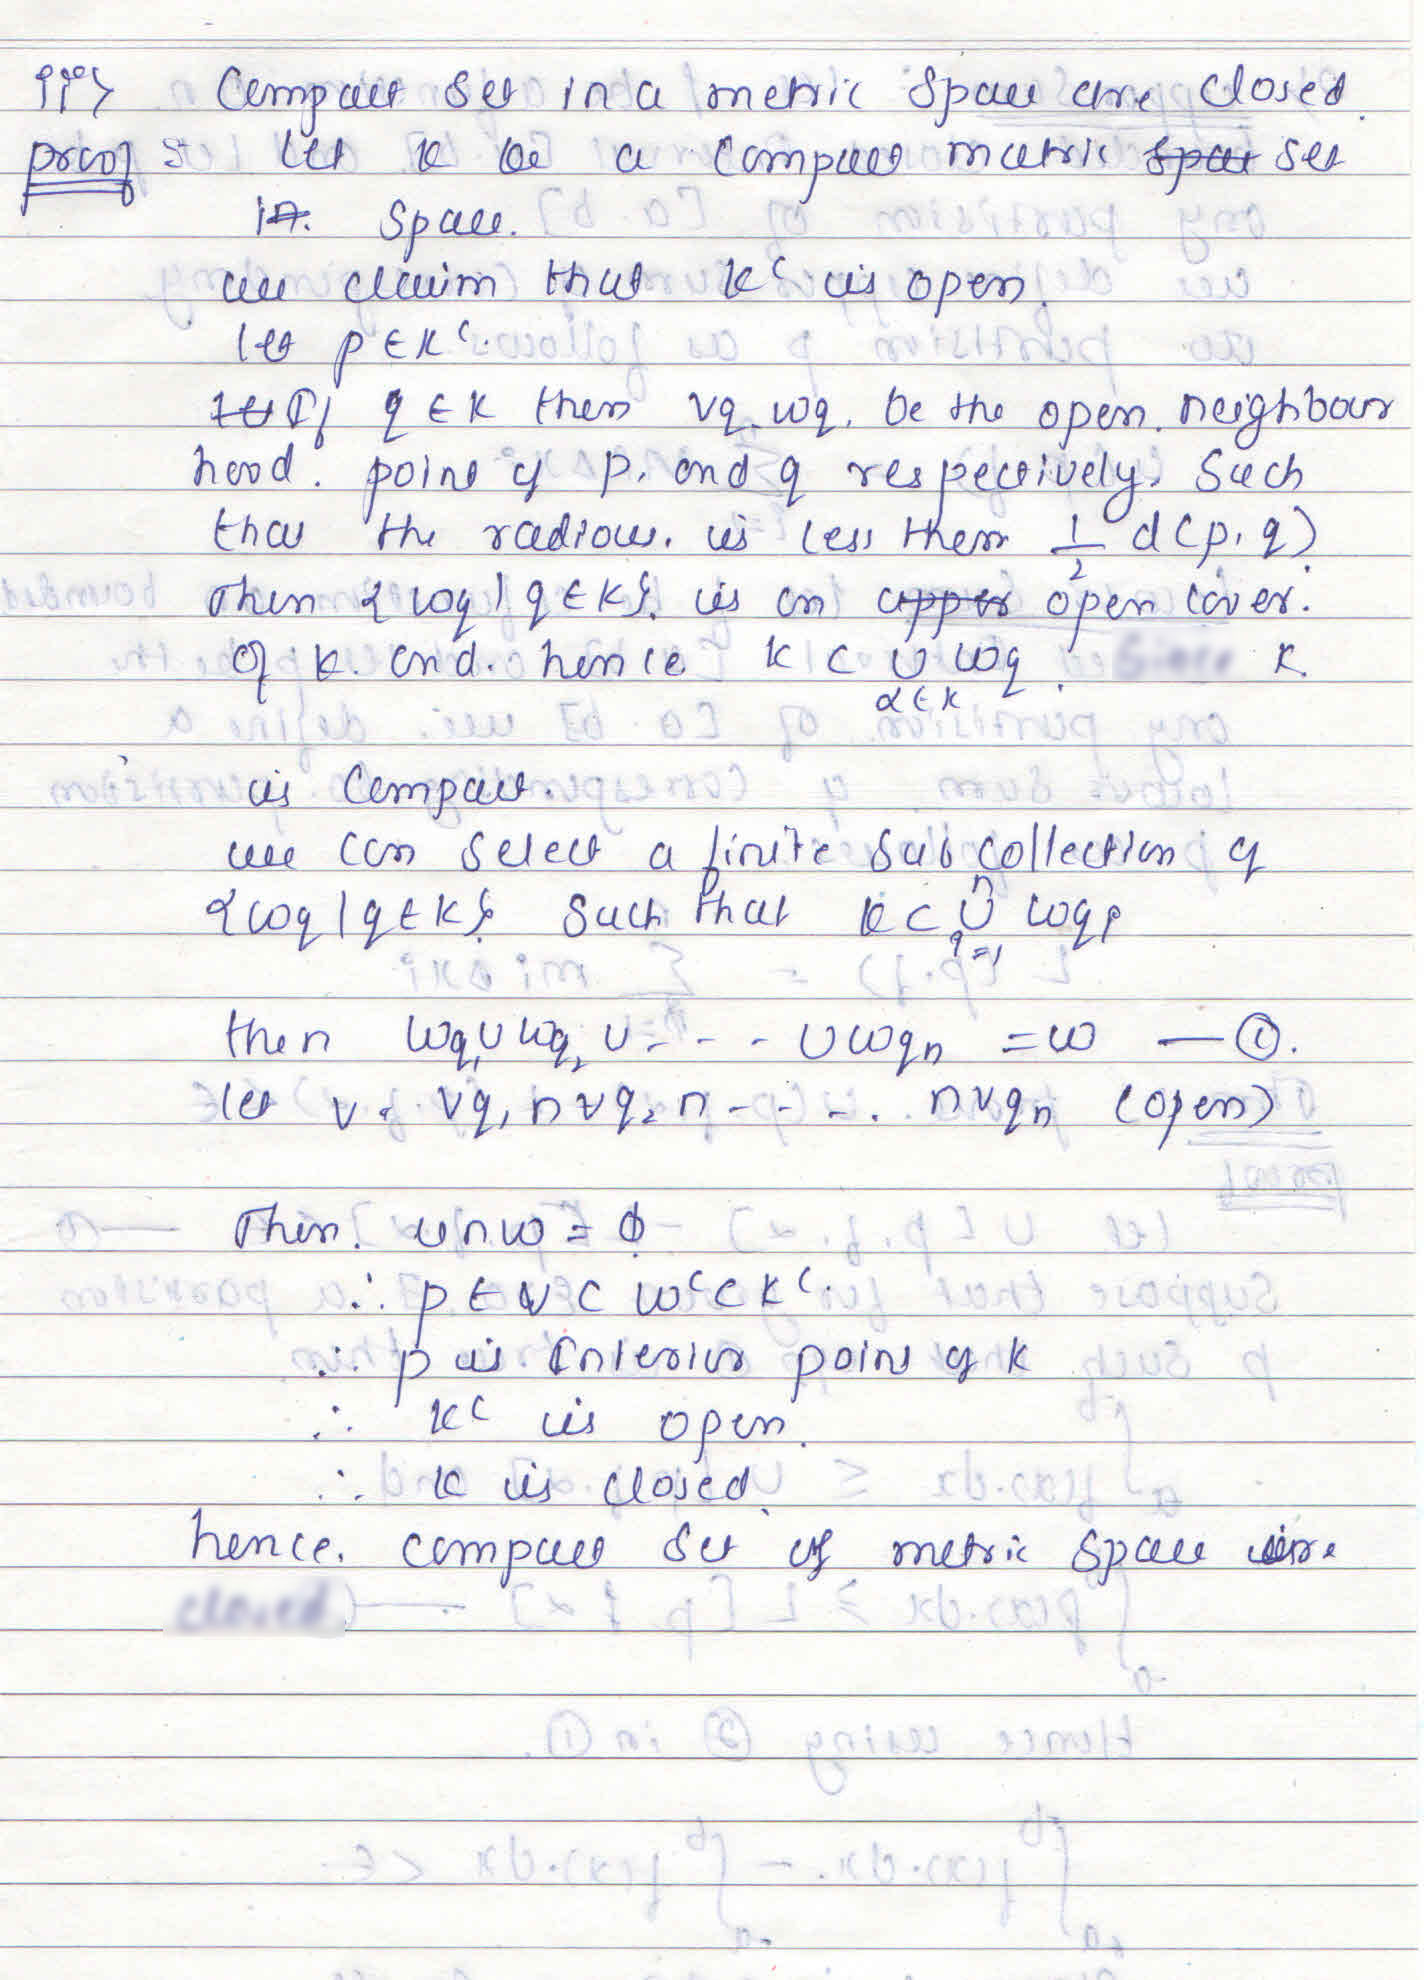 iii> Compact Set in a metric Space are Closed.
proof :- let K be a Compact metric spac set
in. Space.
we claim that K^c is open.
let p ∈ K^c.
let If q ∈ K then Vq, Wq, be the open. neighbour
hood. point of p, and q respectively. Such
that the radious. is less then 1/2 d(p, q).
Then {Wq | q ∈ K}. is an upper open cover.
of K. and. hence K ⊂ ∪ Wq. K.
α ∈ K
is Compact.
we can select a finite sub collection of
{Wq | q ∈ K}. Such that K ⊂ ∪ Wqi
n i=1
then Wq1 ∪ Wq2 ∪ - - - ∪ Wqn = W — ①.
let V = Vq1 ∩ Vq2 ∩ - - - . ∩ Vqn (open)
Then. V ∩ W = ϕ
∴ p ∈ V ⊂ W^c ⊂ K^c.
∴ p is Interior point of K
∴ K^c is open.
∴ K is closed.
hence. compact Set of metric Space are